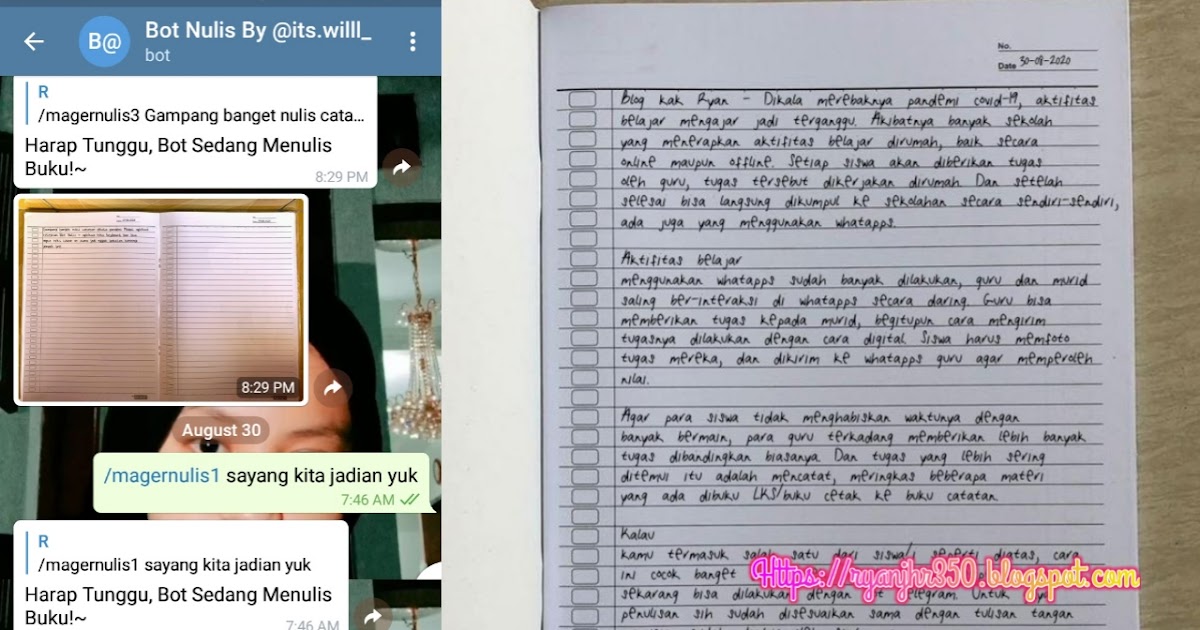 B@
Bot Nulis By @its.willl_
bot
R
/magernulis3 Gampang banget nulis cata...
Harap Tunggu, Bot Sedang Menulis
Buku!~
8:29 PM
8:29 PM
August 30
/magernulis1 sayang kita jadian yuk
7:46 AM
R
/magernulis1 sayang kita jadian yuk
Harap Tunggu, Bot Sedang Menulis
Buku!~
7:46 AM
No.
Date 30-08-2020
Blog kak Ryan - Dikala merebaknya pandemi covid-19, aktifitas
belajar mengajar jadi terganggu. Akibatnya banyak sekolah
yang menerapkan aktifitas belajar dirumah, baik secara
online maupun offline. Setiap siswa akan diberikan tugas
oleh guru, tugas tersebut dikerjakan dirumah. Dan setelah
selesai bisa langsung dikumpul ke sekolahan secara sendiri-sendiri,
ada juga yang menggunakan whatapps.
Aktifitas belajar
menggunakan whatapps sudah banyak dilakukan, guru dan murid
saling ber-interaksi di whatapps secara daring. Guru bisa
memberikan tugas kepada murid, begitupun cara mengirim
tugasnya dilakukan dengan cara digital. Siswa harus memfoto
tugas mereka, dan dikirim ke whatapps guru agar memperoleh
nilai.
Agar para siswa tidak menghabiskan waktunya dengan
banyak bermain, para guru terkadang memberikan lebih banyak
tugas dibandingkan biasanya. Dan tugas yang lebih sering
ditemui itu adalah mencatat, meringkas beberapa materi
yang ada dibuku LKS/buku cetak ke buku catatan.
Kalau
kamu termasuk salah satu dari siswa/i seperti diatas, cara
ini cocok banget
Https://ryanjhr350.blogspot.com
sekarang bisa dilakukan dengan telegram. Untuk
penulisan sih sudah disesuaikan sama dengan tulisan tangan